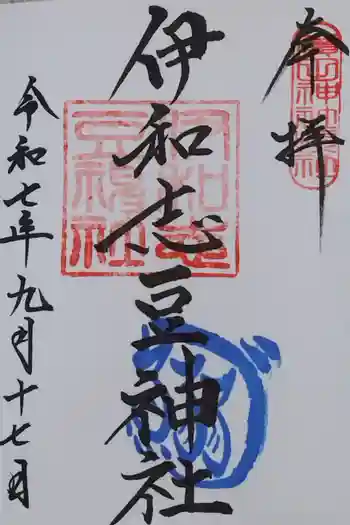 奉拝
伊和志豆神社
令和七年九月十七日
伊和志豆神社